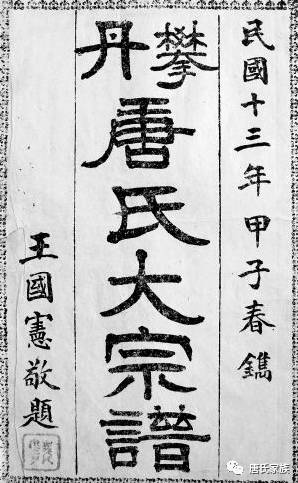 民國十三年甲子春鐫
攀丹唐氏大宗譜
王國憲敬題
居氏家族